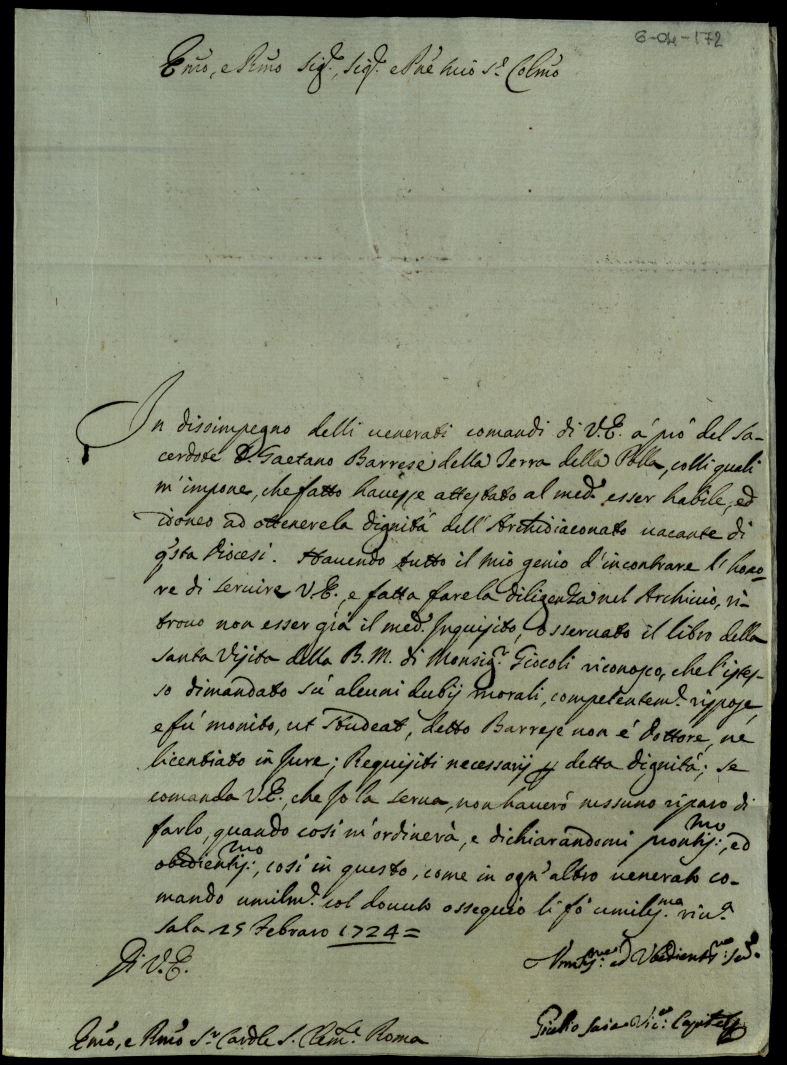 6-04-172
Emo, e Rmo Sigr, Sigr e Pne mio Sr Colmo
In dissimpegno delli venerati comandi di V.E. á pró del Sa-
cerdote D. Gaetano Barrese della Terra della Polla, colli quali
m'impone, che fatto havesse attestato al medo esser habile, ed
idoneo ad ottenere la dignitá dell'Archidiaconato vacante di
qsta Diocesi. Havendo tutto il mio genio d'incontrare l'hono-
re di servire V.E., e fatta fare la diligenza nel Archivio, ri-
trovo non esser giá il medo Inquisito, osservato il libro della
Santa Visita della B.M. di Monsigr Giocoli riconosco, che l'istes-
so dimandato sú alcuni dubij morali, competentemte rispose,
e fú monito, ut studeat, detto Barrese non é Dottore, ne
licentiato in Jure; Requisiti necessarij p detta dignitá; se
comanda V.E., che Io la serva, non haveró nessuno riparo di
farlo, quando cosí m'ordinerà, e dichiarandomi prontismo:, ed
obedientismo:, cosí in questo, come in ogn'altro venerato co-
mando umilmte col dovuto ossequio li fó umilisma rivza
Sala 25 Febraro 1724 =
Di V.E.
ed Ubedientmo: Sere
Giulio Vico: Capitre
Emo, e Rmo Sr Cardle S. Clemte Roma